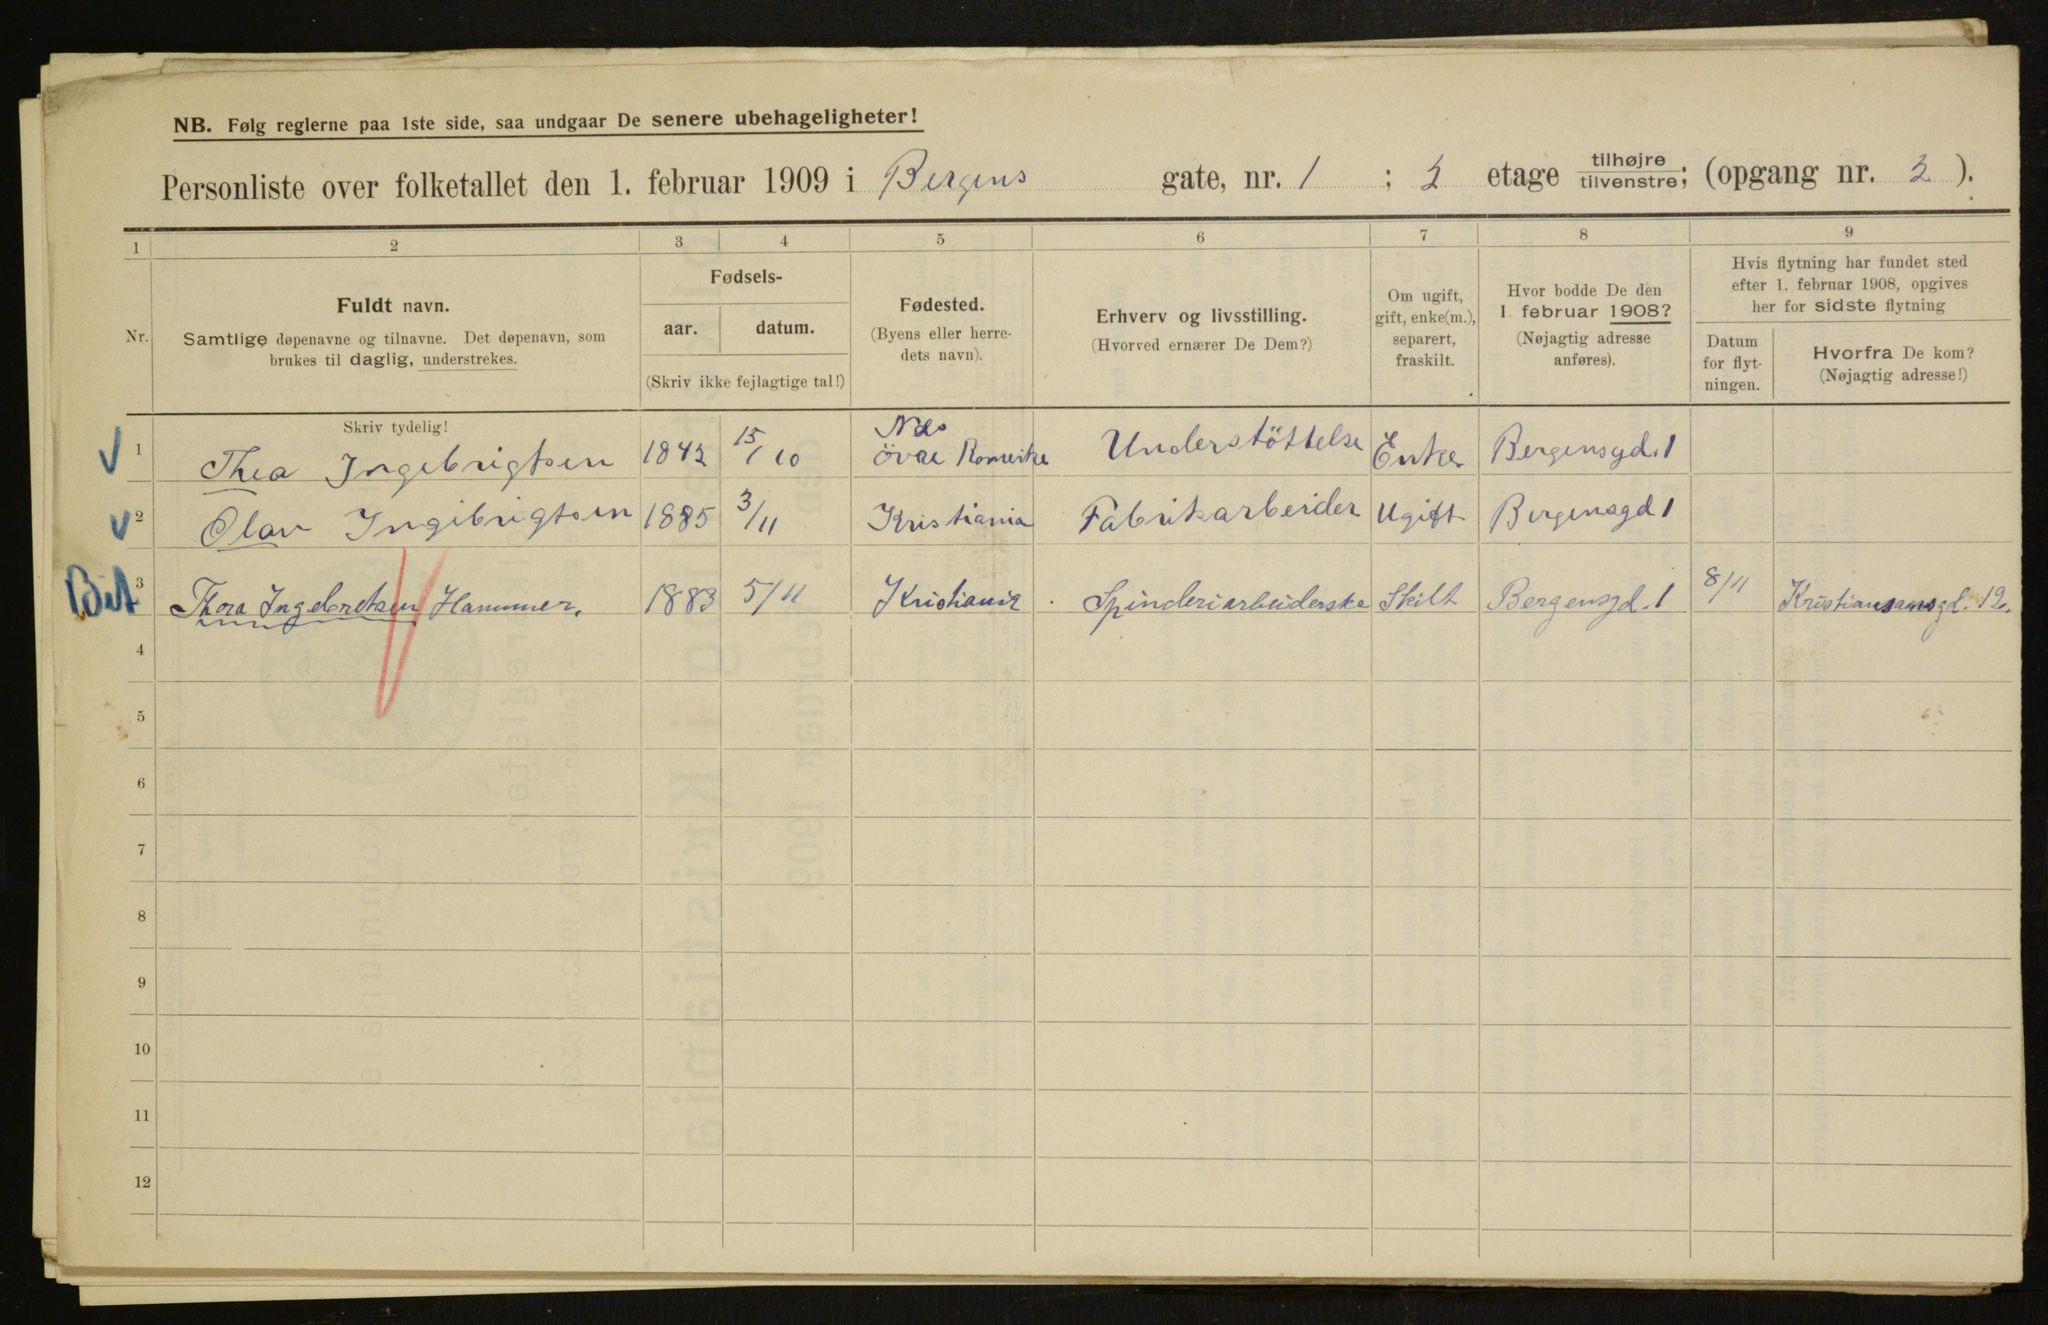 NB. Følg reglerne paa 1ste side, saa undgaar De senere ubehageligheter!
Personliste over folketallet den 1. februar 1909 i Bergens gate, nr. 1 ; 2 etage tilhøjre/tilvenstre; (opgang nr. 2 ).
1 2 3 4 5 6 7 8 9
Nr.
Fuldt navn.
Samtlige døpenavne og tilnavne. Det døpenavn, som
brukes til daglig, understrekes.
Fødsels-
aar. datum.
(Skriv ikke fejlagtige tal!)
Fødested.
(Byens eller herre-
dets navn).
Erhverv og livsstilling.
(Hvorved ernærer De Dem?)
Om ugift,
gift, enke(m.),
separert,
fraskilt.
Hvor bodde De den
1 februar 1908?
(Nøjagtig adresse
anføres).
Hvis flytning har fundet sted
efter 1. februar 1908, opgives
her for sidste flytning
Datum
for flyt-
ningen.
Hvorfra De kom?
(Nøjagtig adresse!)
Skriv tydelig!
1 Thea Ingebrigtsen 1842 15/10 Nes Övre Romerike Understöttelse Enke Bergensgd. 1
2 Olav Ingebrigtsen 1885 3/11 Kristiania Fabrikarbeider Ugift Bergensgd 1
3 Thora Ingebretsen Hammer. 1883 5/11 Kristiania Spinderiarbeiderske Skilt Bergensgd. 1 8/11 Kristiansansgd. 12.
4
5
6
7
8
9
10
11
12